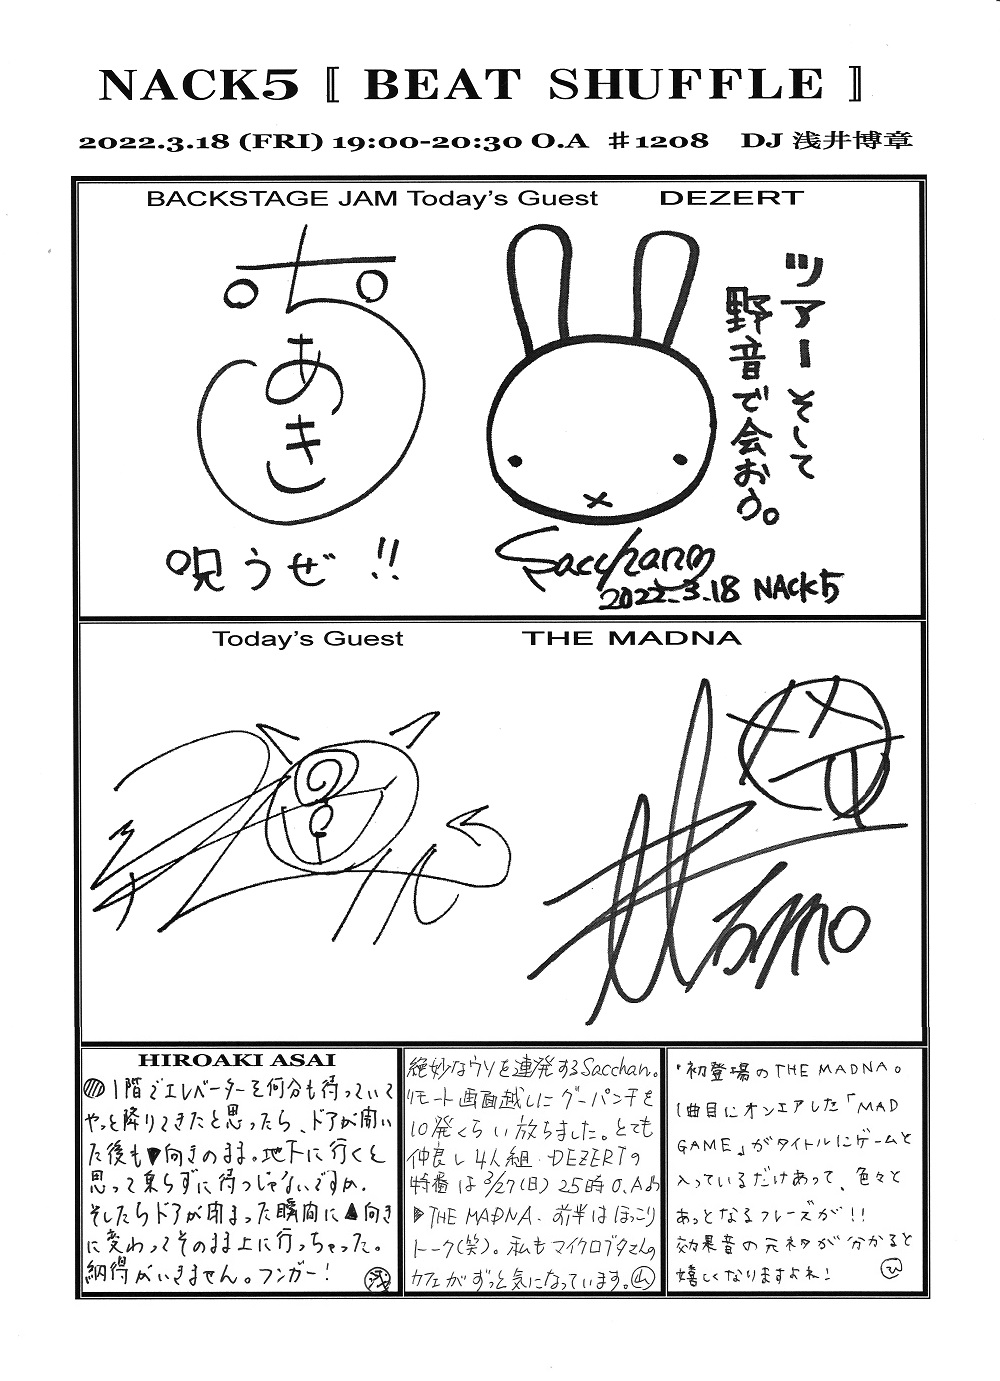 NACK5 〚 BEAT SHUFFLE 〛
2022.3.18 (FRI) 19:00-20:30 O.A ＃1208 DJ 浅井博章
BACKSTAGE JAM Today's Guest DEZERT
ち
あき
呪うぜ!!
ツアーそして
野音で会おう。
Sacchan
2022.3.18 NACK5
Today's Guest THE MADNA
Tomo
HIROAKI ASAI
1階でエレベーターを何分も待っていて
やっと降りてきたと思ったら、ドアが開い
た後も▼向きのまま。地下に行くと
思って乗らずに待つじゃないですか。
そしたらドアが閉まった瞬間に▲向き
に変わってそのまま上に行っちゃった。
納得がいきません。フンガー! 浅
絶妙なウソを連発するSacchan。
リモート画面越しにグーパンチを
10発くらい放ちました。とても
仲良し4人組・DEZERTの
特番は3/27(日)25時O.A
▶THE MADNA. 前半はほっこり
トーク(笑)。私もマイクロブタさんの
カフェがずっと気になっています。山
・初登場のTHE MADNA。
1曲目にオンエアした「MAD
GAME」がタイトルにゲームと
入っているだけあって、色々と
あっとなるフレーズが!!
効果音の元ネタが分かると
嬉しくなりますよね! ひ